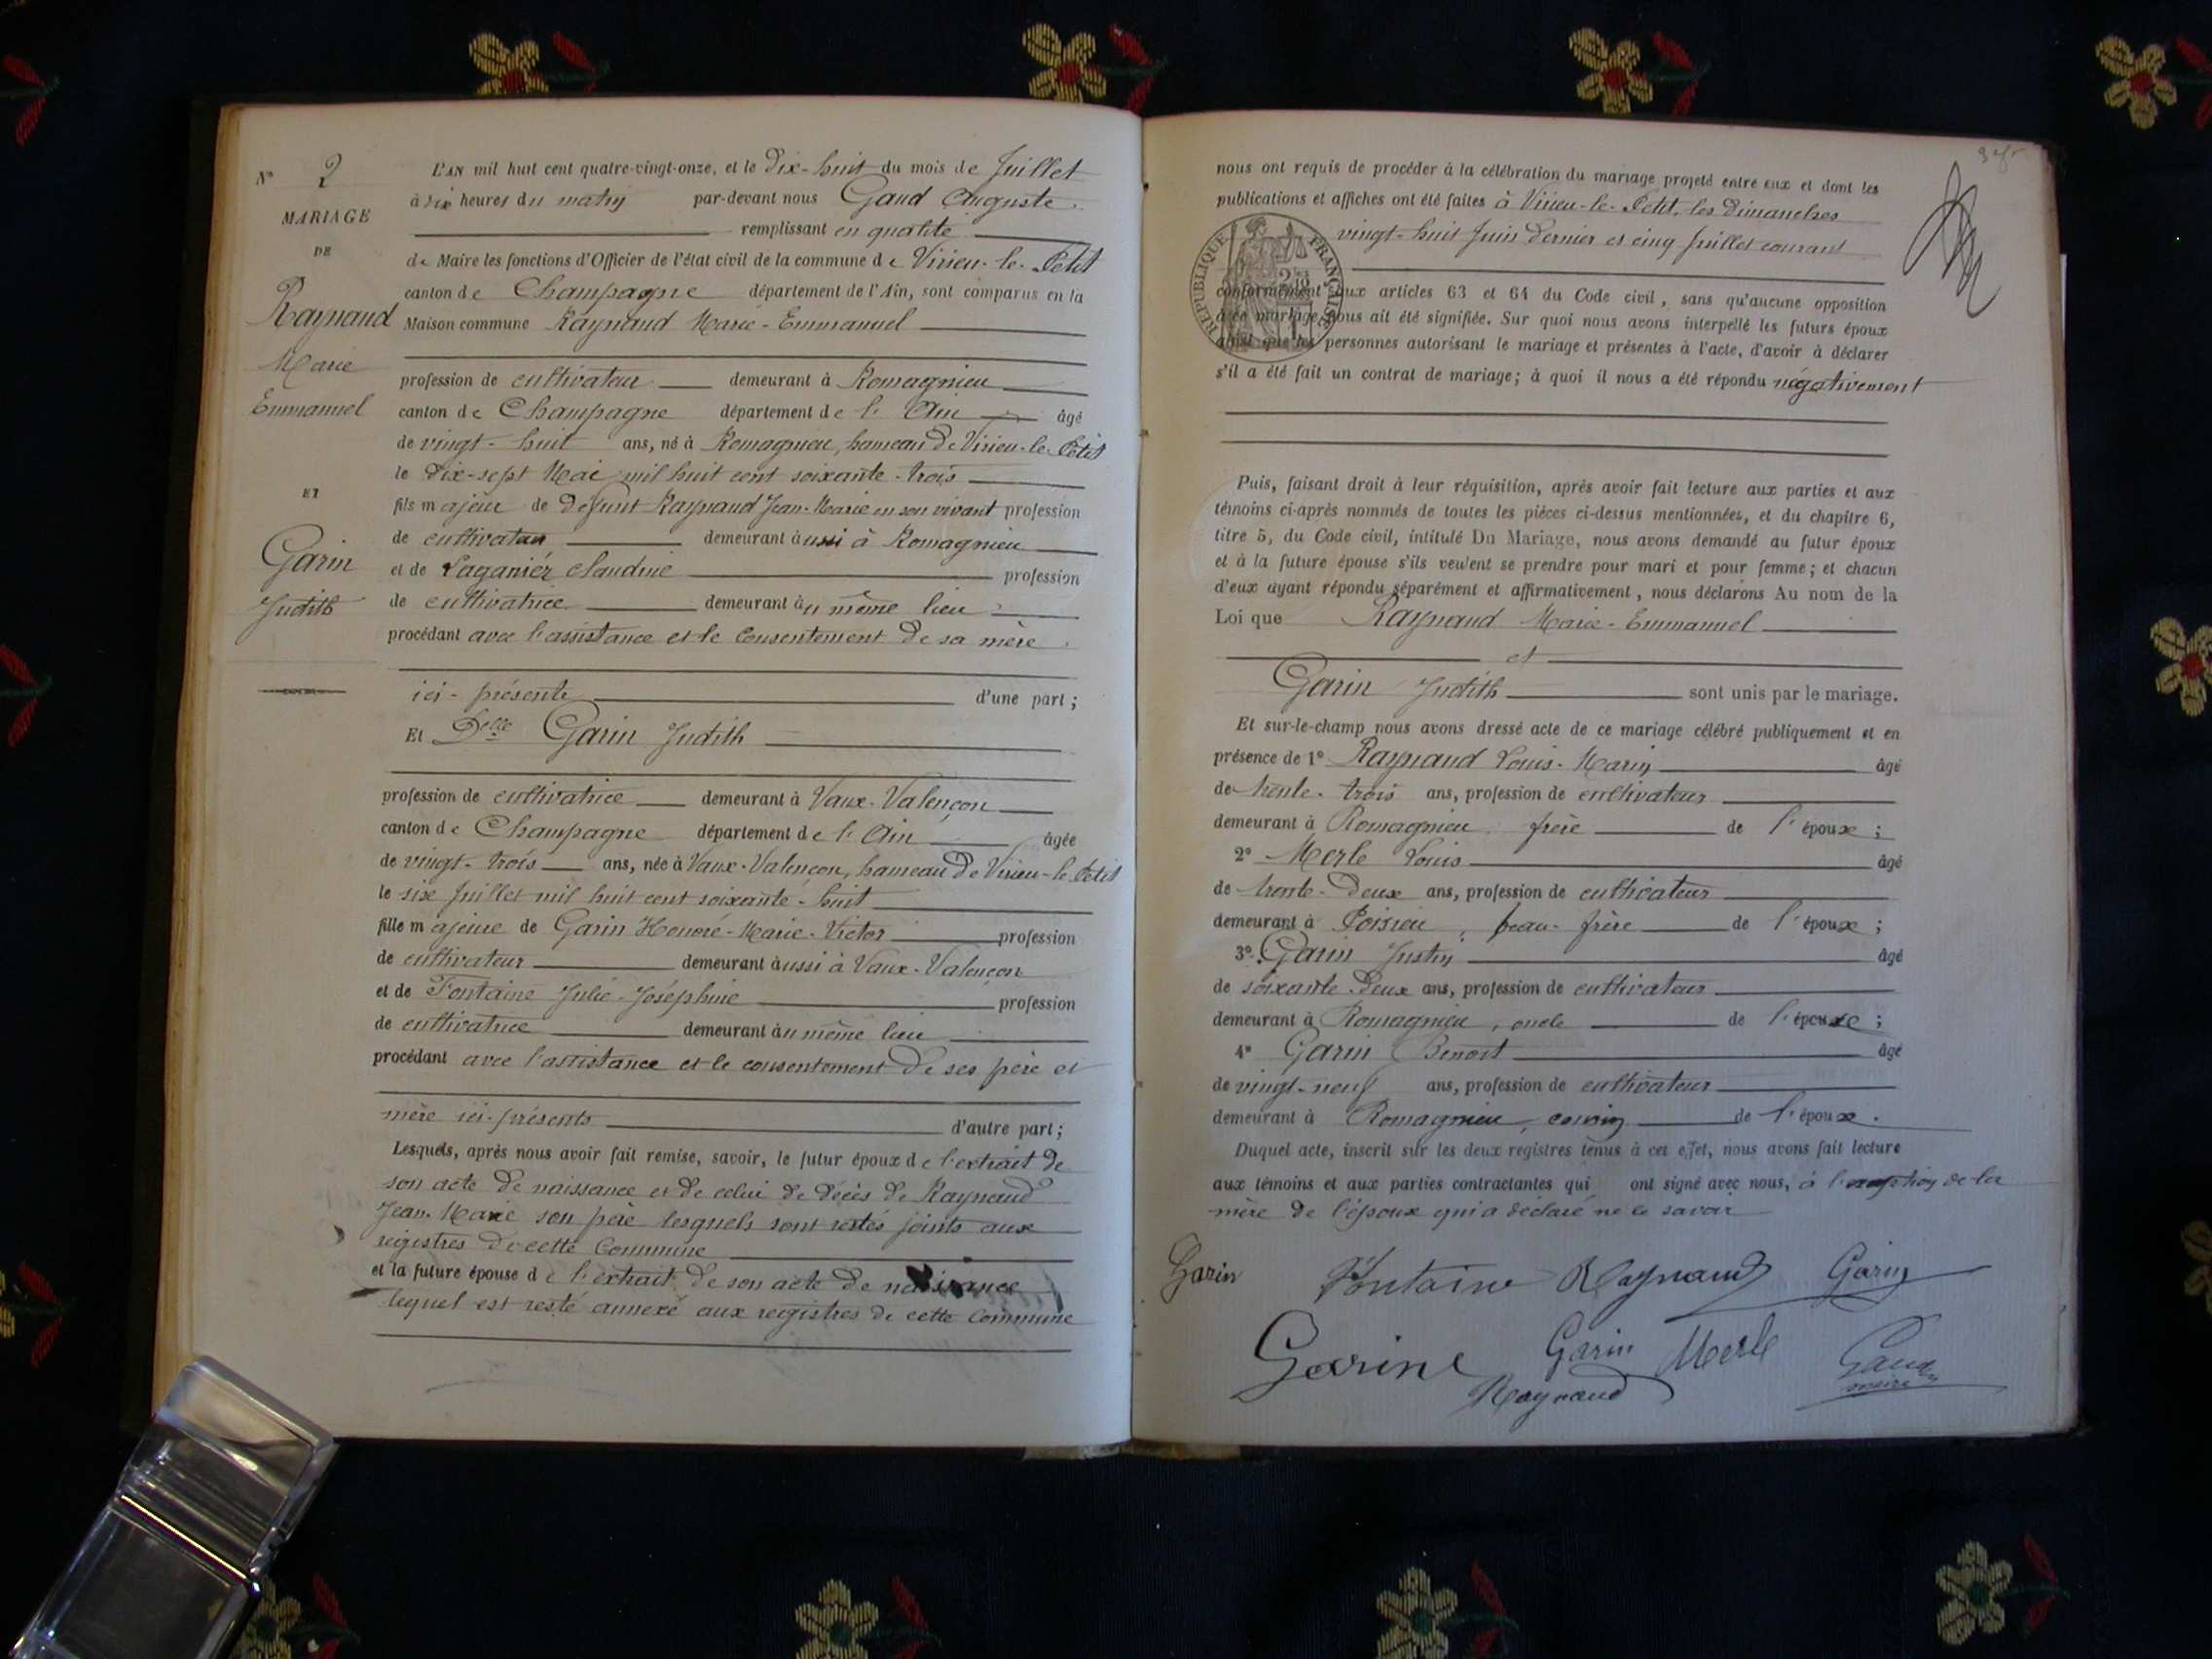 N° 2
MARIAGE
DE
Raynaud
Marie
Emmanuel
ET
Garin
Judith
L'AN mil huit cent quatre-vingt-onze, et le Dix-huit du mois de Juillet
à dix heures du matin par-devant nous Gaud Auguste.
remplissant en qualité
de Maire les fonctions d'Officier de l'état civil de la commune de Virieu-le-Petit
canton de Champagne département de l'Ain, sont comparus en la
Maison commune Raynaud Marie-Emmanuel
profession de cultivateur demeurant à Romagnieu
canton de Champagne département de l'Ain âgé
de vingt-huit ans, né à Romagnieu, hameau de Virieu-le-Petit
le dix-sept Mai mil huit cent soixante-trois
fils majeur de Défunt Raynaud Jean-Marie en son vivant profession
de cultivateur demeurant aussi à Romagnieu
et de Laganiér Claudine profession
de cultivatrice demeurant au même lieu
procédant avec l'assistance et le consentement de sa mère
ici-présente d'une part;
Et Delle Garin Judith
profession de cultivatrice demeurant à Vaux-Valençon
canton de Champagne département de l'Ain âgée
de vingt-trois ans, née à Vaux-Valençon, hameau de Virieu-le-Petit
le six Juillet mil huit cent soixante-huit
fille majeure de Garin Honoré-Marie-Victor profession
de cultivateur demeurant aussi à Vaux-Valençon
et de Fontaine Julie-Joséphine profession
de cultivatrice demeurant au même lieu
procédant avec l'assistance et le consentement de ses père et
mère ici-présents d'autre part;
Lesquels, après nous avoir fait remise, savoir, le futur époux de l'extrait de
son acte de naissance et de celui de décès de Raynaud
Jean-Marie son père lesquels sont restés joints aux
registres de cette Commune
et la future épouse de l'extrait de son acte de naissance
lequel est resté annexé aux registres de cette Commune
nous ont requis de procéder à la célébration du mariage projeté entre eux et dont les
publications et affiches ont été faites à Virieu-le-Petit, les Dimanches
vingt-huit Juin dernier et cinq Juillet courant
RÉPUBLIQUE FRANÇAISE
conformément aux articles 63 et 64 du Code civil, sans qu'aucune opposition
à ce mariage nous ait été signifiée. Sur quoi nous avons interpellé les futurs époux
ainsi que les personnes autorisant le mariage et présentes à l'acte, d'avoir à déclarer
s'il a été fait un contrat de mariage; à quoi il nous a été répondu négativement
Puis, faisant droit à leur réquisition, après avoir fait lecture aux parties et aux
témoins ci-après nommés de toutes les pièces ci-dessus mentionnées, et du chapitre 6,
titre 5, du Code civil, intitulé Du Mariage, nous avons demandé au futur époux
et à la future épouse s'ils veulent se prendre pour mari et pour femme; et chacun
d'eux ayant répondu séparément et affirmativement, nous déclarons Au nom de la
Loi que Raynaud Marie-Emmanuel
et
Garin Judith sont unis par le mariage.
Et sur-le-champ nous avons dressé acte de ce mariage célébré publiquement et en
présence de 1° Raynaud Louis-Marin âgé
de trente-trois ans, profession de cultivateur
demeurant à Romagnieu frère de l'époux;
2° Merle Louis âgé
de trente-deux ans, profession de cultivateur
demeurant à Poisieu, beau-frère de l'époux;
3° Garin Justin âgé
de soixante-deux ans, profession de cultivateur
demeurant à Romagnieu, oncle de l'épouse;
4° Garin Benoit âgé
de vingt-neuf ans, profession de cultivateur
demeurant à Romagnieu, cousin de l'époux.
Duquel acte, inscrit sur les deux registres tenus à cet effet, nous avons fait lecture
aux témoins et aux parties contractantes qui ont signé avec nous, à l'exception de la
mère de l'époux qui a déclaré ne le savoir
Garin Fontaine Raynaud Garin
Garine Garin Merle Gaud
Raynaud maire